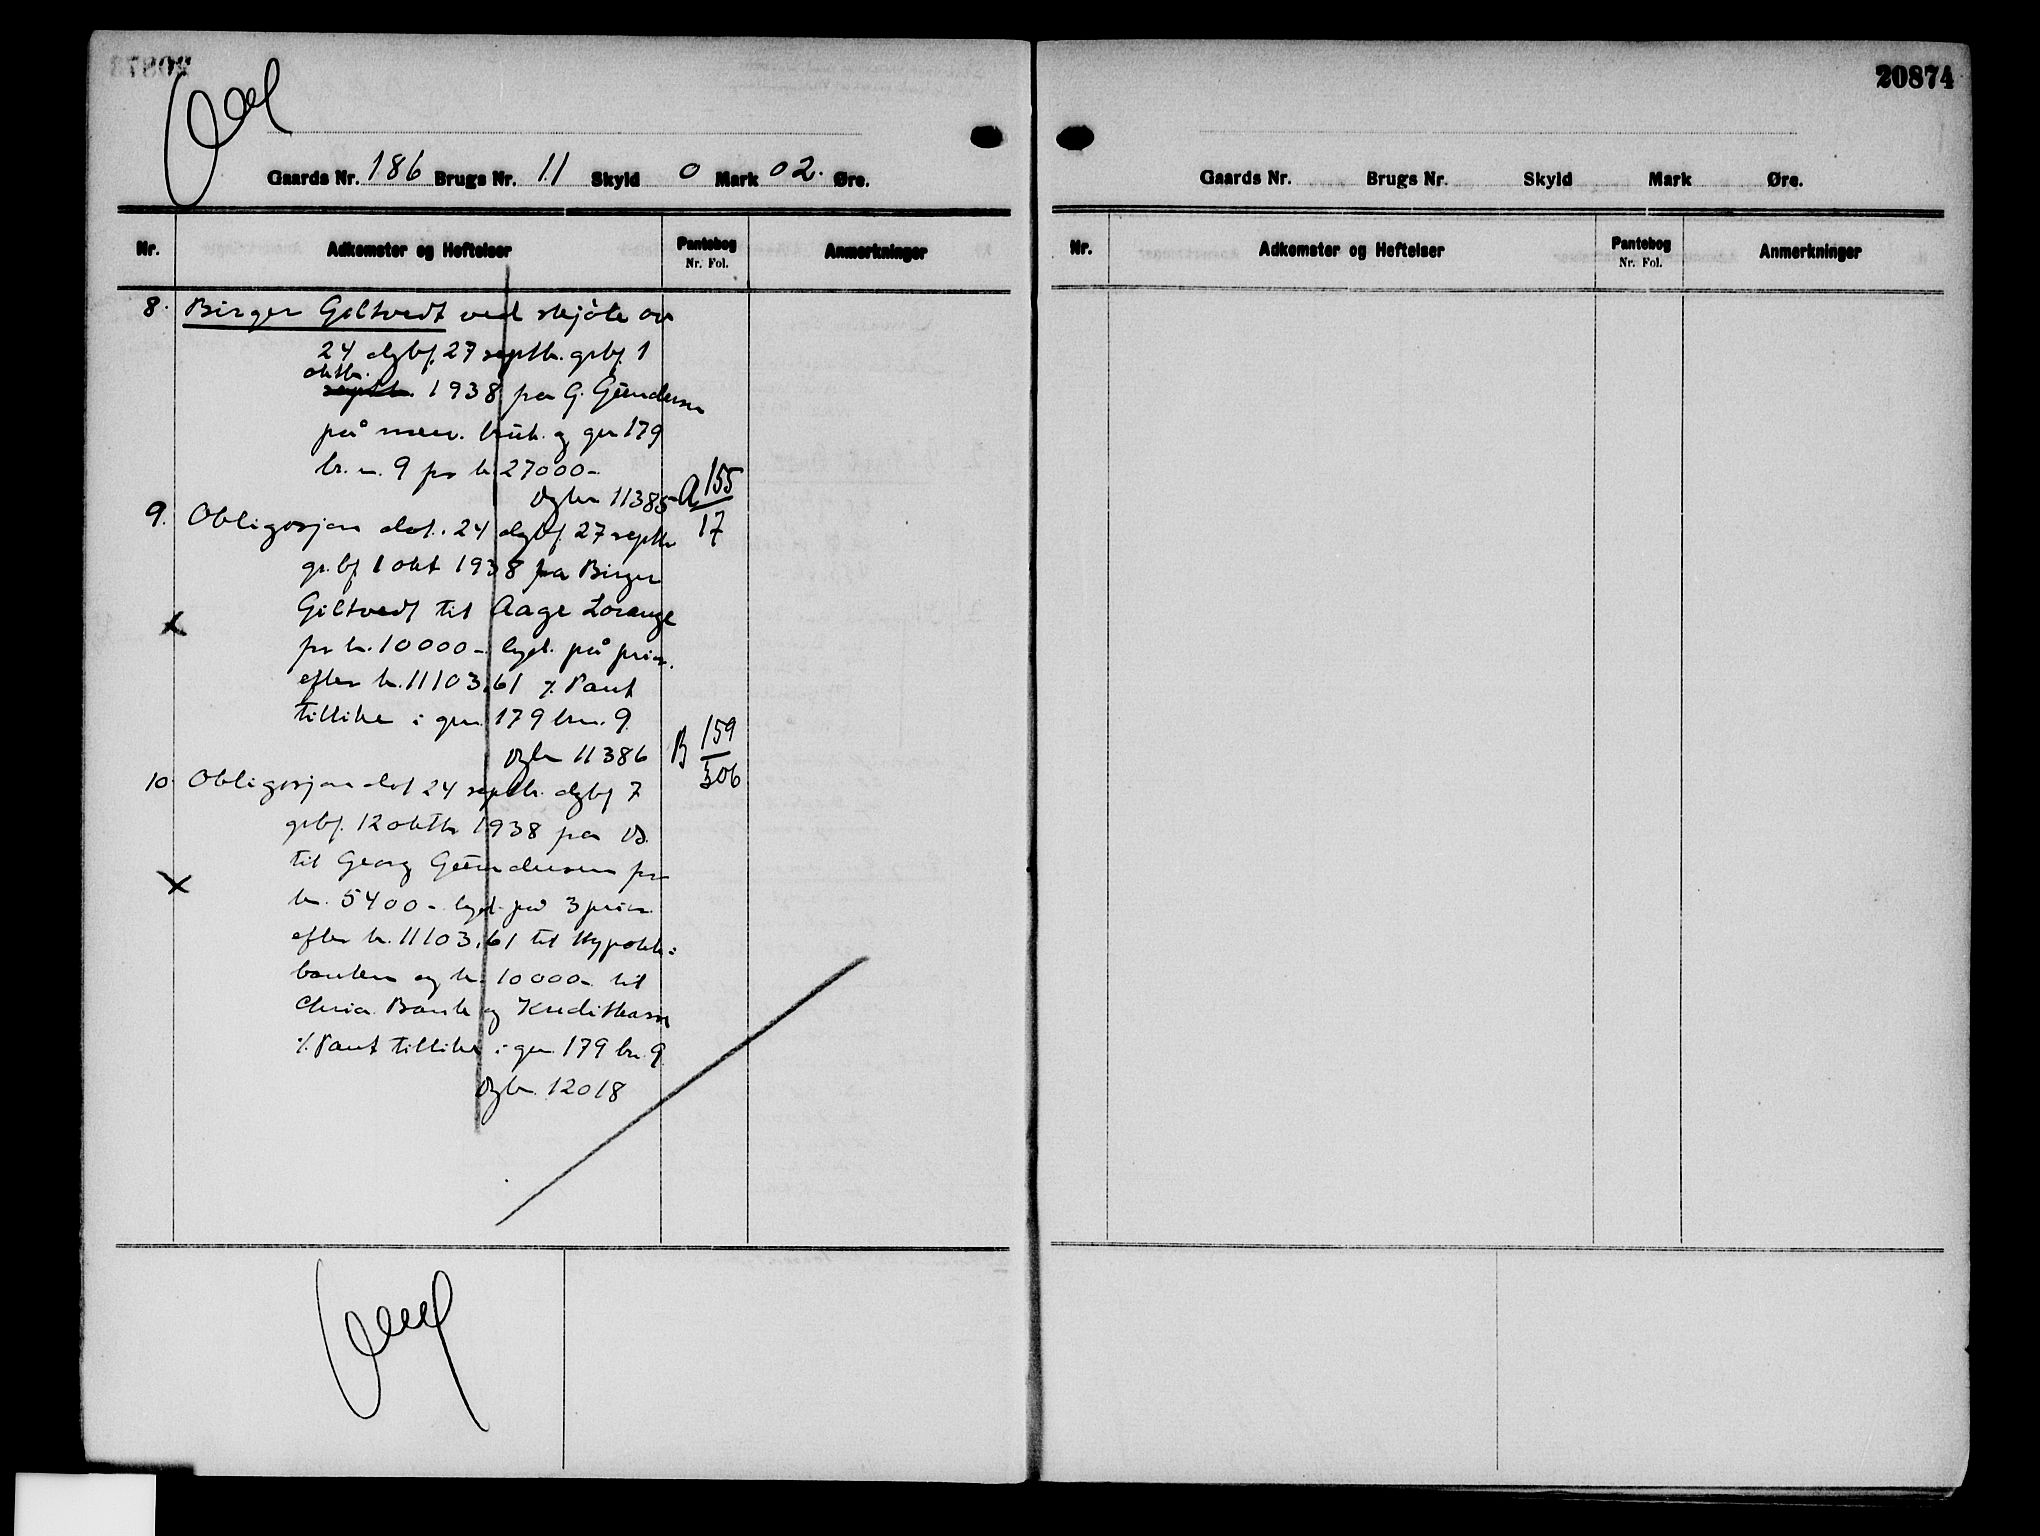 20874
Gaards Nr. 186 Brugs Nr. 11 Skyld 0 Mark 02. Øre.
Nr. Adkomster og Heftelser Pantebog Nr. Fol. Anmerkninger
8. Birger Giltvedt ved skjöte av
24 dgbf. 27 septbr. grbf. 1
oktbr.
septbr. 1938 fra G. Gŭndersen
på næv. brŭk. og gnr 179
br. nr. 9 for kr. 27000-
Dgbnr 11385 A 155
17
9. Obligasjon dat. 24 dgbf. 27 septbr
gr.bf 1 okt 1938 fra Birger
Giltvedt til Aage Lorange
x
for kr. 10000- lyd. på prior.
efter kr. 11103,61 ⁒ Pant
tillike i gnr. 179 brn. 9.
Dgbn 11386 B 159
306
10 Obligasjon dat 24 septbr. dgbf 7
grbf. 12 oktbr 1938 fra Ds.
til Georg Gŭndersen for
x
kr. 5400- lyd. på 3 prior.
efter kr. 11103,61 til Hypotek:
banken og kr. 10000- til
Chria. Bank og Kreditkasse
⁒ Pant tillike i gnr. 179 bn. 9.
Dgbn. 12018
20874
Gaards Nr. Brugs Nr. Skyld Mark Øre.
Nr. Adkomster og Heftelser Pantebog Nr. Fol. Anmerkninger